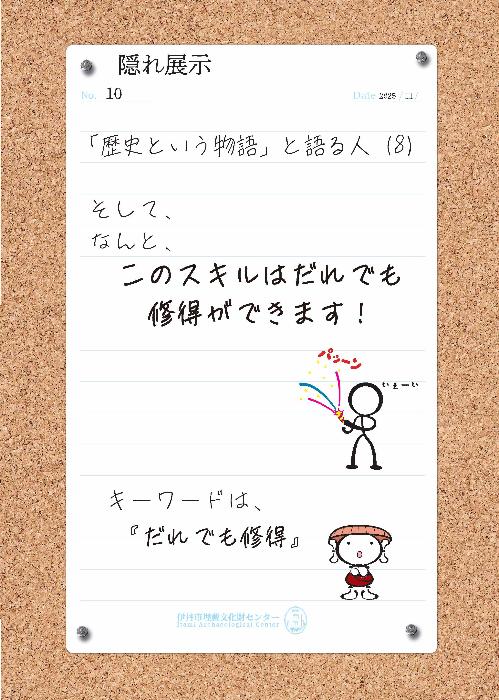 隠れ展示
No. 10 Date 2025 / 11 /
「歴史という物語」と語る人 (8)
そして、
なんと、
このスキルはだれでも
修得ができます！
パァーン
いぇーい
キーワードは、
『だれでも修得』
伊丹市埋蔵文化財センター
Itami Archaeological Center